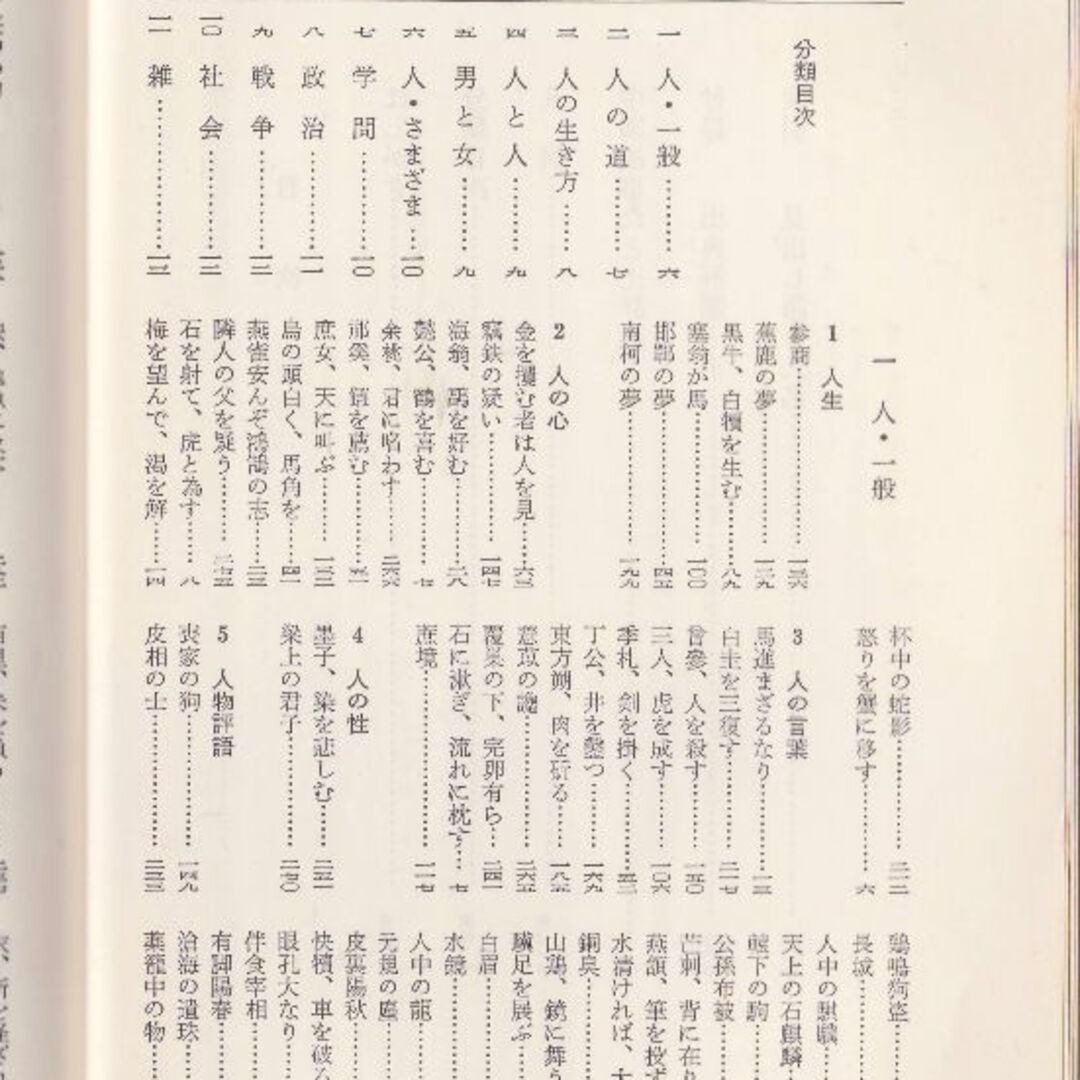 分類目次
一 人・一般……六
二 人の道……七
三 人の生き方……八
四 人と人……九
五 男と女……九
六 人・さまざま…一〇
七 学問……一〇
八 政治……一一
九 戦争……一二
一〇 社会……一二
一一 雑……一二
一 人・一般
1 人生
参商
蕉鹿の夢
黒牛、白犢を生む……八九
塞翁が馬……一〇〇
邯鄲の夢……四五
南柯の夢……一九九
2 人の心
金を攫む者は人を見……六三
竊鉄の疑い……一四七
海翁、鷗を好む……二八
懿公、鶴を喜む……七
余桃、君に啗わす……二六六
庶女、天に叫ぶ
烏の頭白く、馬角を……四一
燕雀安んぞ鴻鵠の志
隣人の父を疑う
石を射て、虎と為す……八
梅を望んで、渇を解……一四
杯中の蛇影
怒りを蟹に移す……六
3 人の言葉
馬進まざるなり……一三
白圭を三復す……二一七
曽參、人を殺す……一五〇
三人、虎を成す……一〇六
季札、剣を掛く
丁公、井を鑿つ……一六九
東方朔、肉を斫る……一八五
薏苡の謗……二六五
覆巣の下、完卵有ら…二四一
石に漱ぎ、流れに枕す…七
蔗境……一一七
4 人の性
墨子、染を悲しむ……二五一
梁上の君子……二七〇
5 人物評語
喪家の狗……一四九
皮相の士……二三三
鶏鳴狗盗
長城
人中の騏驥
天上の石麒麟
轅下の駒
公孫布被
芒刺、背に在り
燕頷、筆を投ず
水清ければ、大
銅臭
山鶏、鏡に舞う
驥足を展ぶ
白眉
水鏡
人中の龍
元規の塵
皮裏陽秋
快犢、車を破る
眼孔大なり
伴食宰相
有脚陽春
滄海の遺珠
薬籠中の物